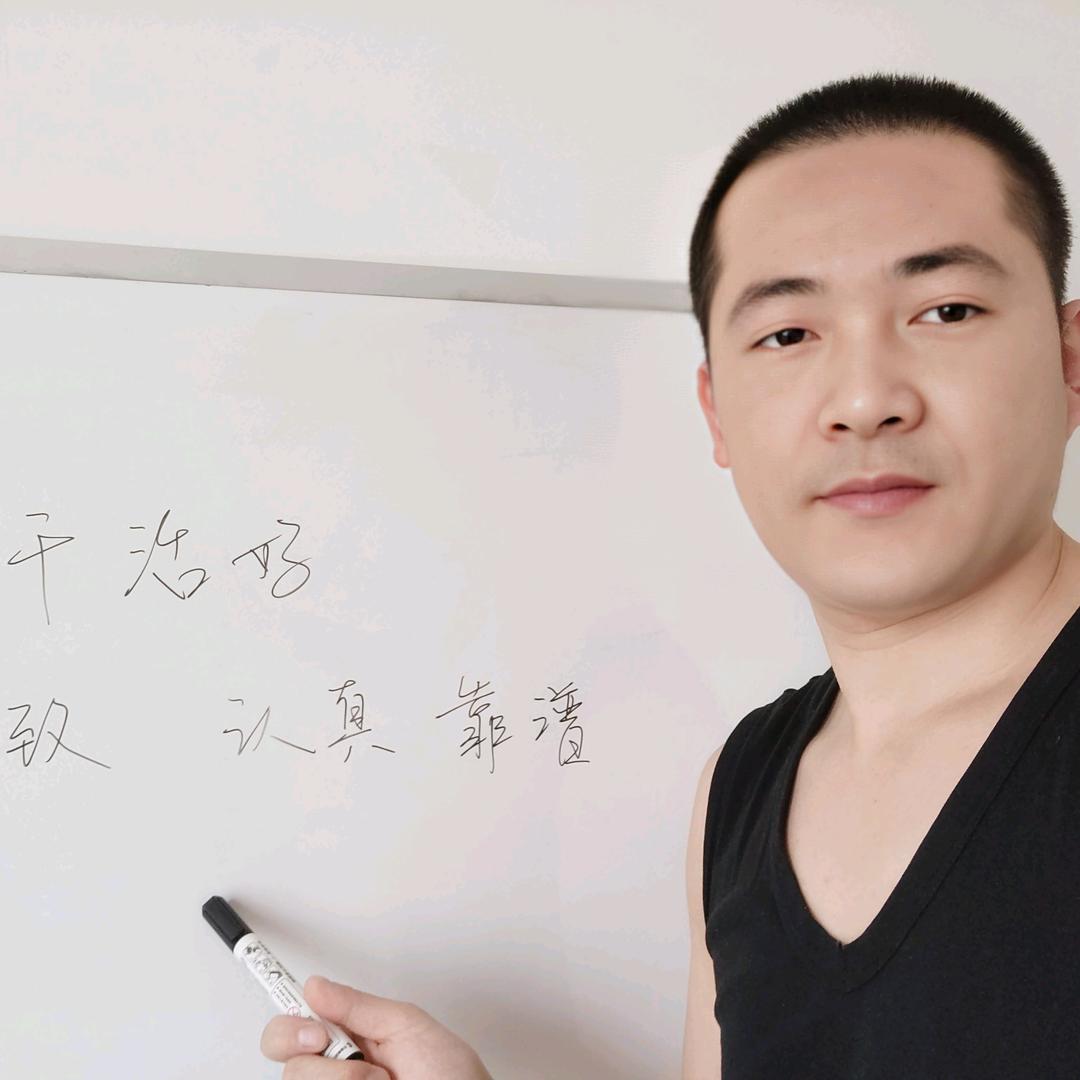 干活好
致 认真 靠谱